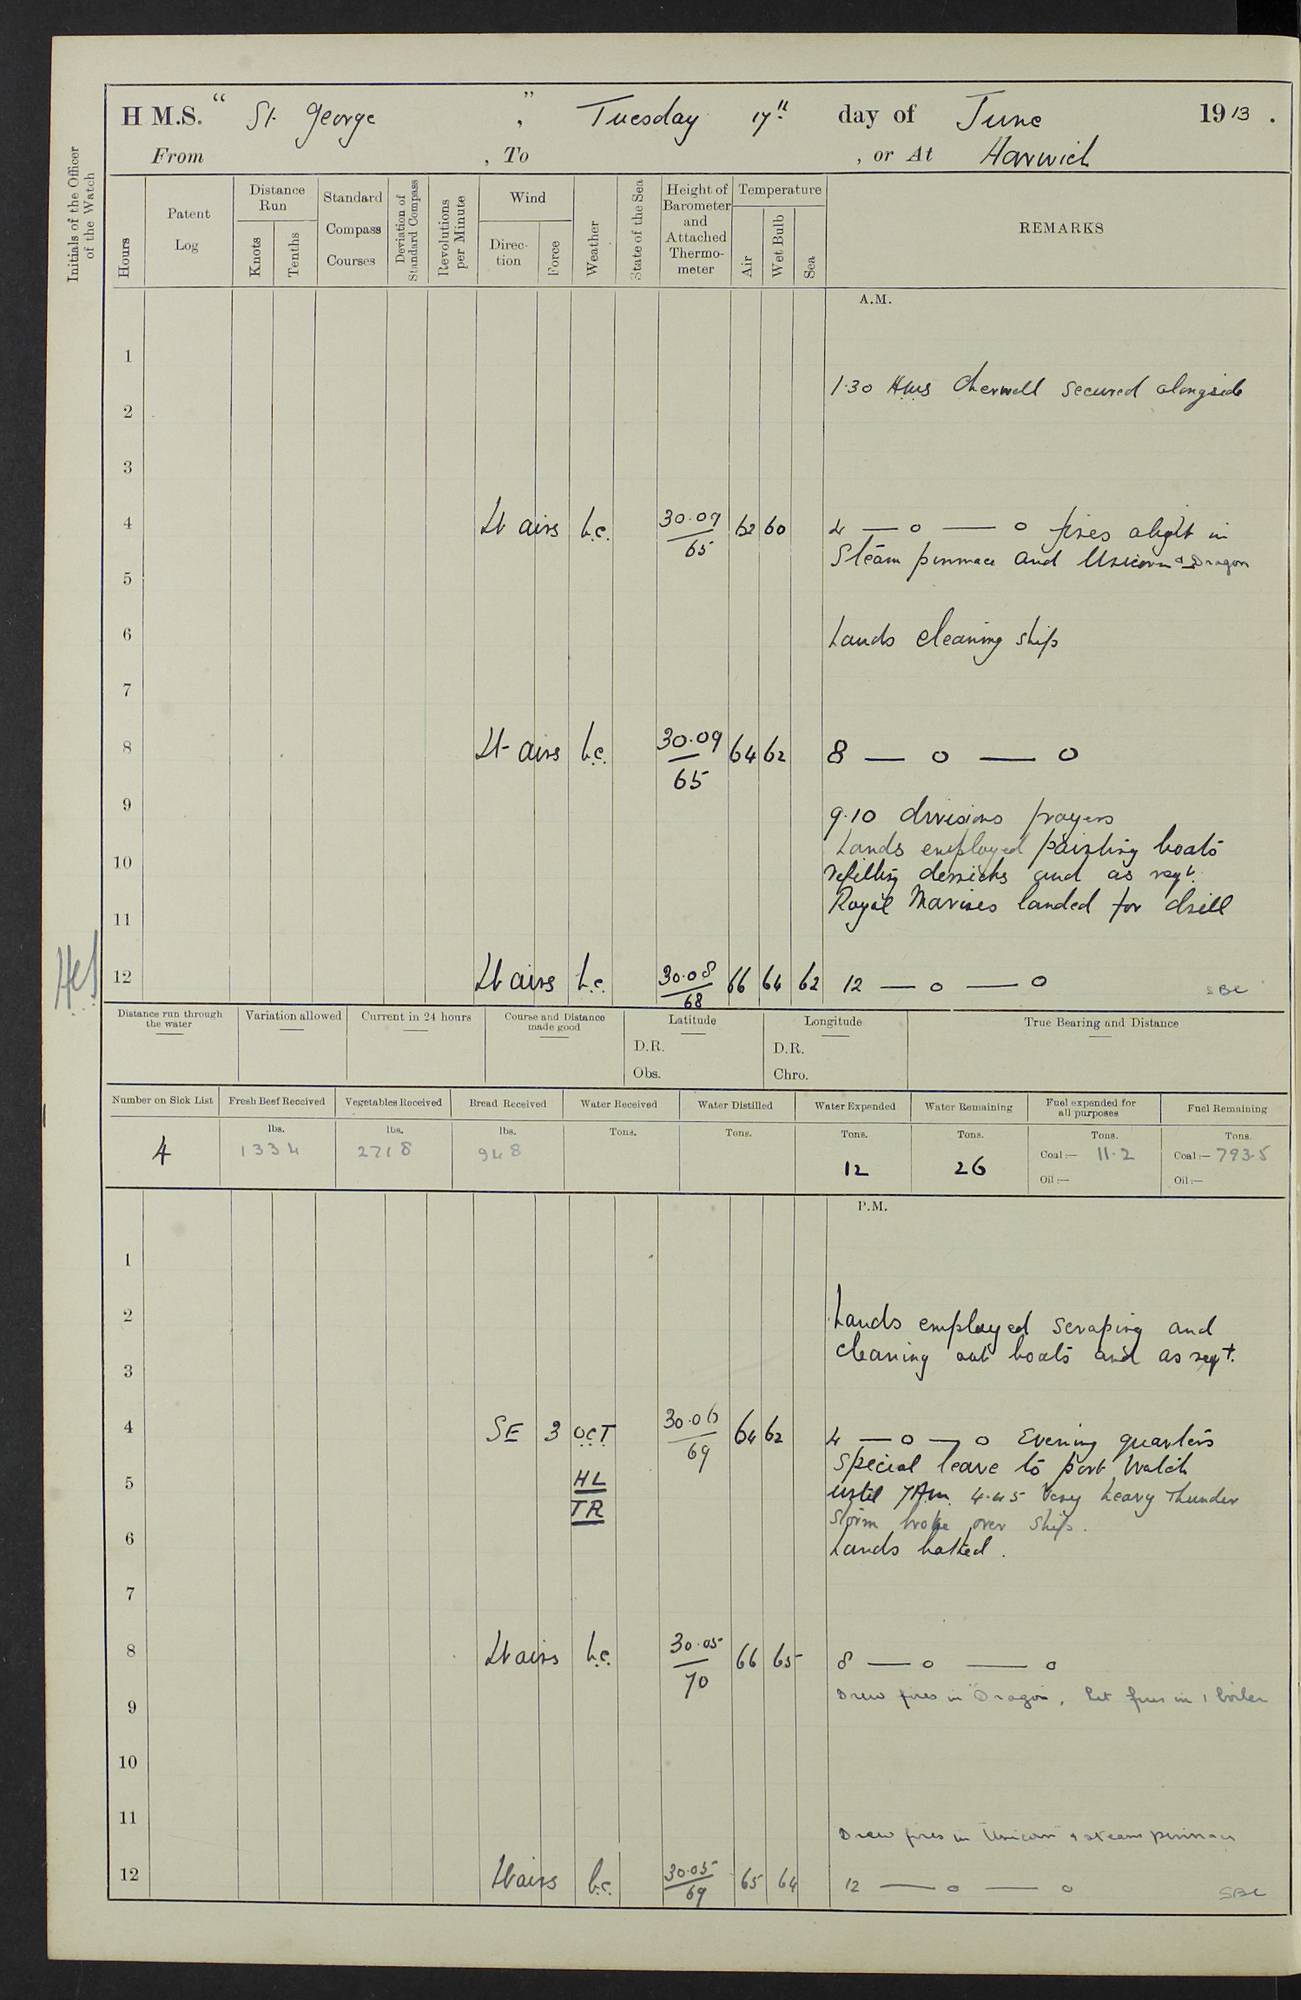 H M.S. " St. George ", Tuesday 17th day of June 1913.
From , To , or At Harwich
Initials of the Officer of the Watch
Hours
Patent Log
Distance Run
Knots
Tenths
Standard Compass Courses
Deviation of Standard Compass
Revolutions per Minute
Wind
Direction
Force
Weather
State of the Sea
Height of Barometer and Attached Thermometer
Temperature
Air
Wet Bulb
Sea
REMARKS
A.M.
1
1.30 HMS Cherwell secured alongside
2
3
4 Lt airs b.c. 30.09 65 62 60 4 — o — o fires alight in
Steam pinnace and Unicorn & Dragon
5
6 Hands cleaning ship
7
8 Lt airs b.c. 30.09 65 64 62 8 — o — o
9 9.10 divisions prayers
Hands employed painting boats
10 refitting derricks and as reqt.
Royal Marines landed for drill
11
12 Lt airs b.c. 30.08 68 66 64 62 12 — o — o SBC
Distance run through the water
Variation allowed
Current in 24 hours
Course and Distance made good
Latitude
D.R.
Obs.
Longitude
D.R.
Chro.
True Bearing and Distance
Number on Sick List
Fresh Beef Received
Vegetables Received
Bread Received
Water Received
Water Distilled
Water Expended
Water Remaining
Fuel expended for all purposes
Fuel Remaining
4
lbs. 1334
lbs. 2718
lbs. 948
Tons.
Tons.
Tons. 12
Tons. 26
Tons. Coal:— 11.2 Oil:—
Tons. Coal:— 793.5 Oil:—
P.M.
1
2 Hands employed scraping and
cleaning out boats and as reqt.
3
4 SE 3 OCT 30.06 69 64 62 4 — o — o Evening quarters
Special leave to port watch
5 HL until 7 Am. 4.45 Very heavy Thunder
TR storm broke over ship.
6 Hands bathed.
7
8 Lt airs b.c. 30.05 70 66 65 8 — o — o
Drew fires in "Dragon", Lit fires in 1 boiler
9
10
11
Drew fires in Unicorn & steam pinnace
12 Lt airs b.c. 30.05 69 65 64 12 — o — o SBC